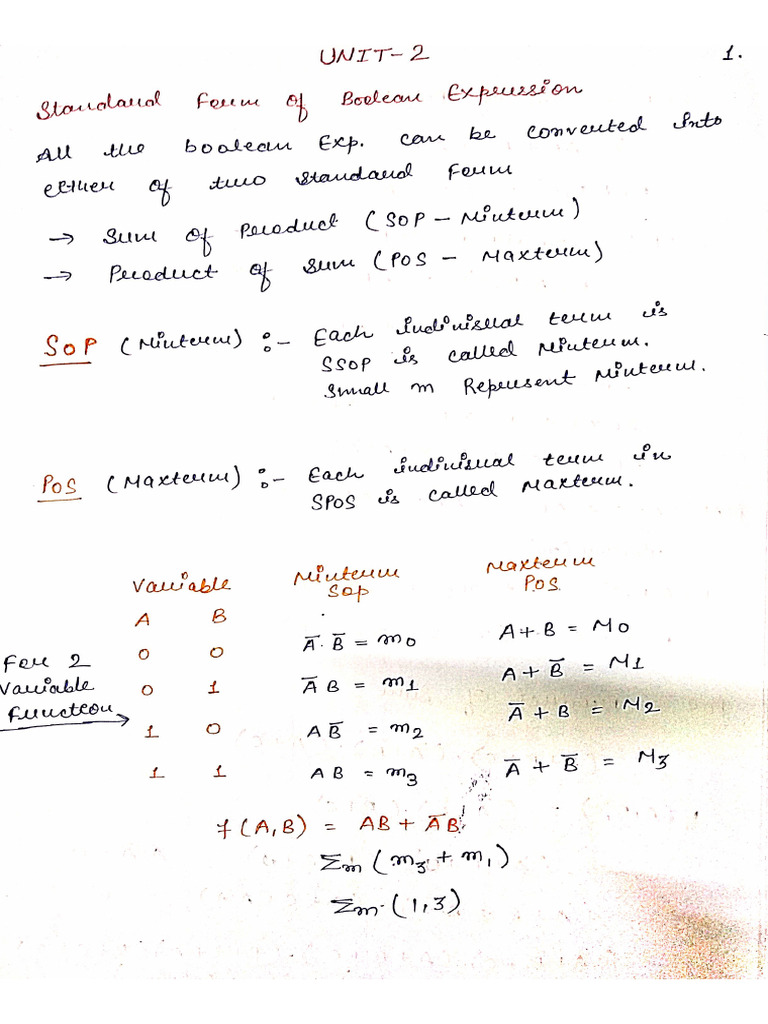 UNIT-2
1.
Standard Form of Boolean Expression
All the boolean Exp. can be converted into
either of two standard Form
→ Sum of Product (SOP - Minterm)
→ Product of Sum (POS - Maxterm)
SOP (Minterm) :- Each individual term is
SSOP is called Minterm.
Small m Represent Minterm.
POS (Maxterm) :- Each individual term in
SPOS is called Maxterm.
Variable Minterm Maxterm
SOP POS
A B
0 0 A̅·B̅ = m0 A+B = M0
0 1 A̅B = m1 A+B̅ = M1
1 0 AB̅ = m2 A̅+B = M2
1 1 AB = m3 A̅+B̅ = M3
For 2
Variable
function →
f(A,B) = AB + A̅B
Σm (m3 + m1)
Σm (1,3)